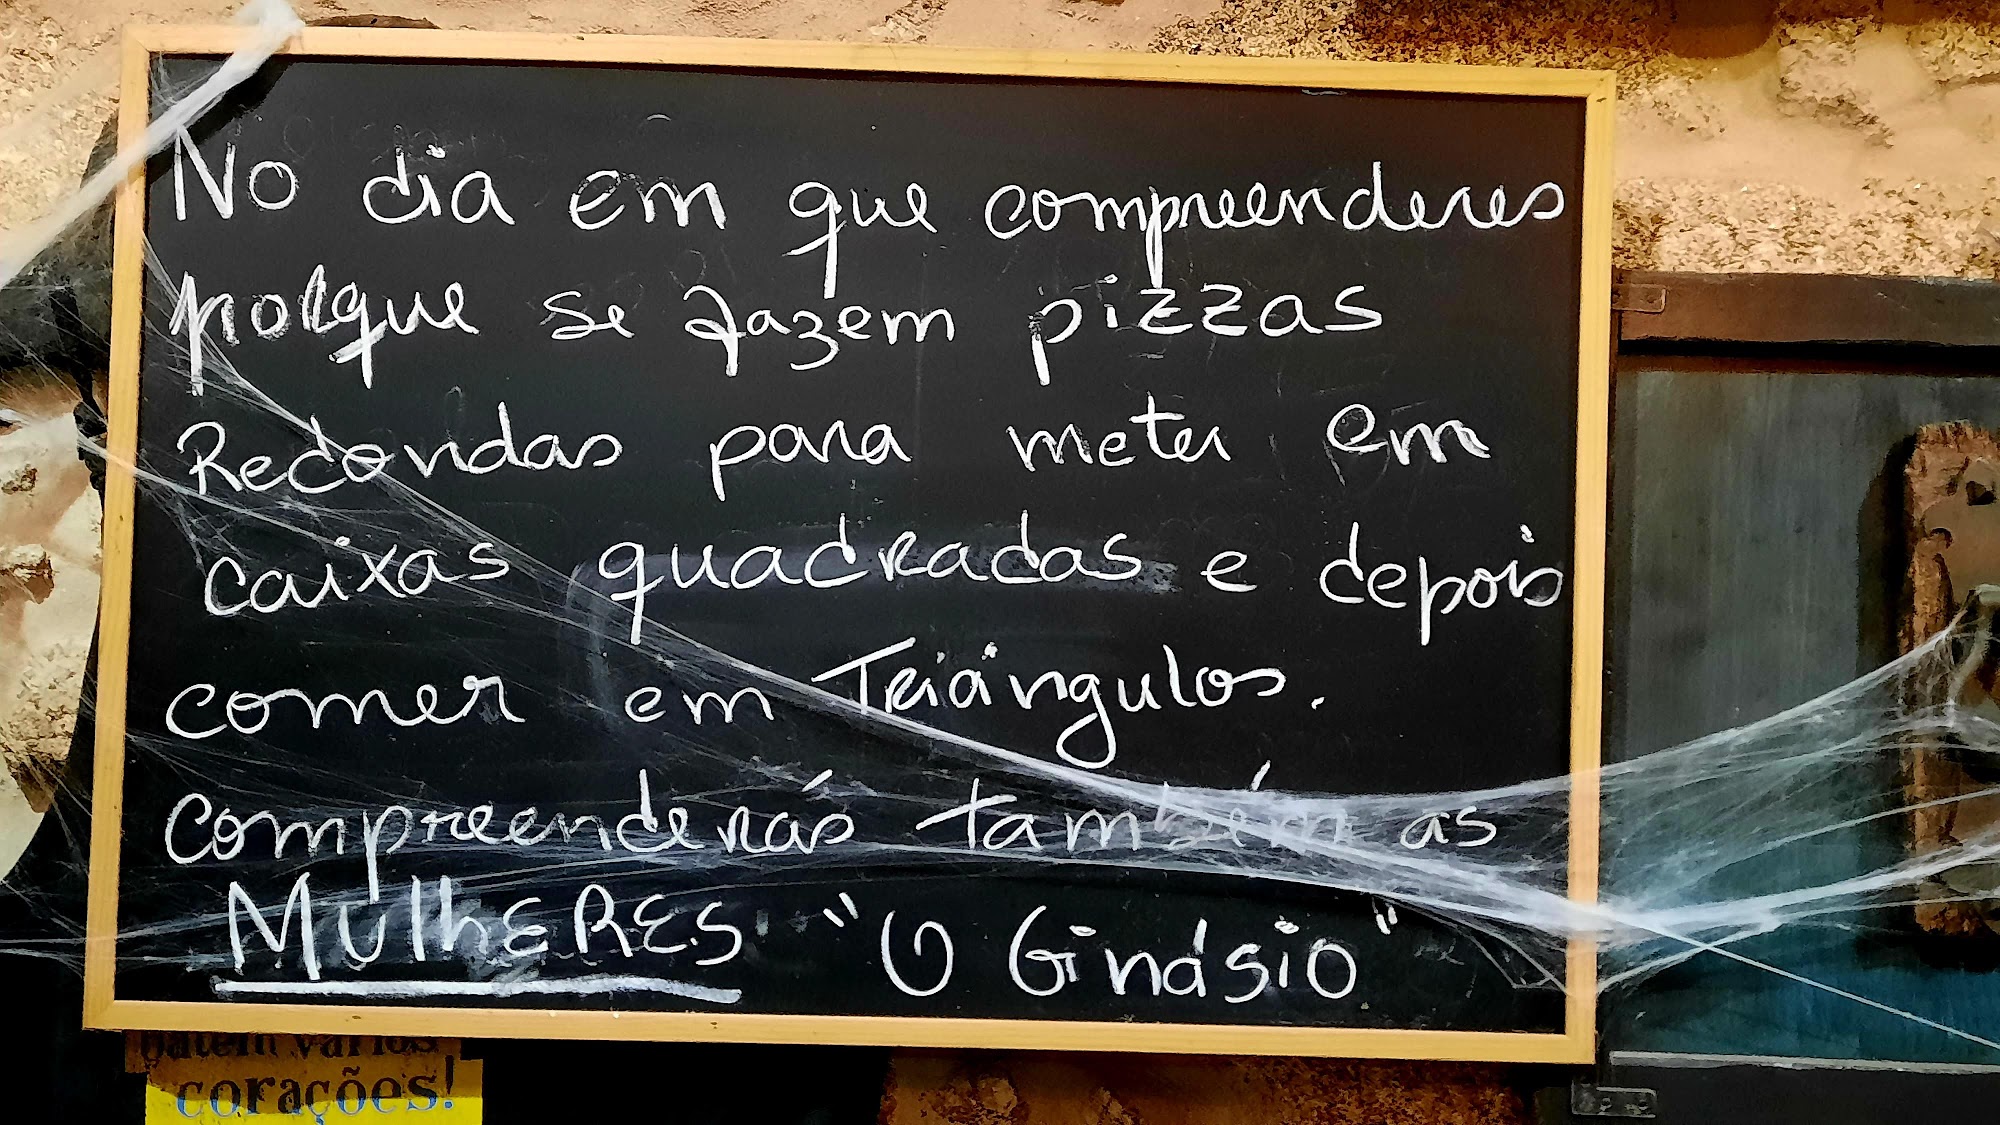 No dia em que compreenderes
porque se fazem pizzas
Redondas para meter em
caixas quadradas e depois
comer em Triângulos.
compreenderás também as
MulhERES "O Ginásio"
batem vários
corações!